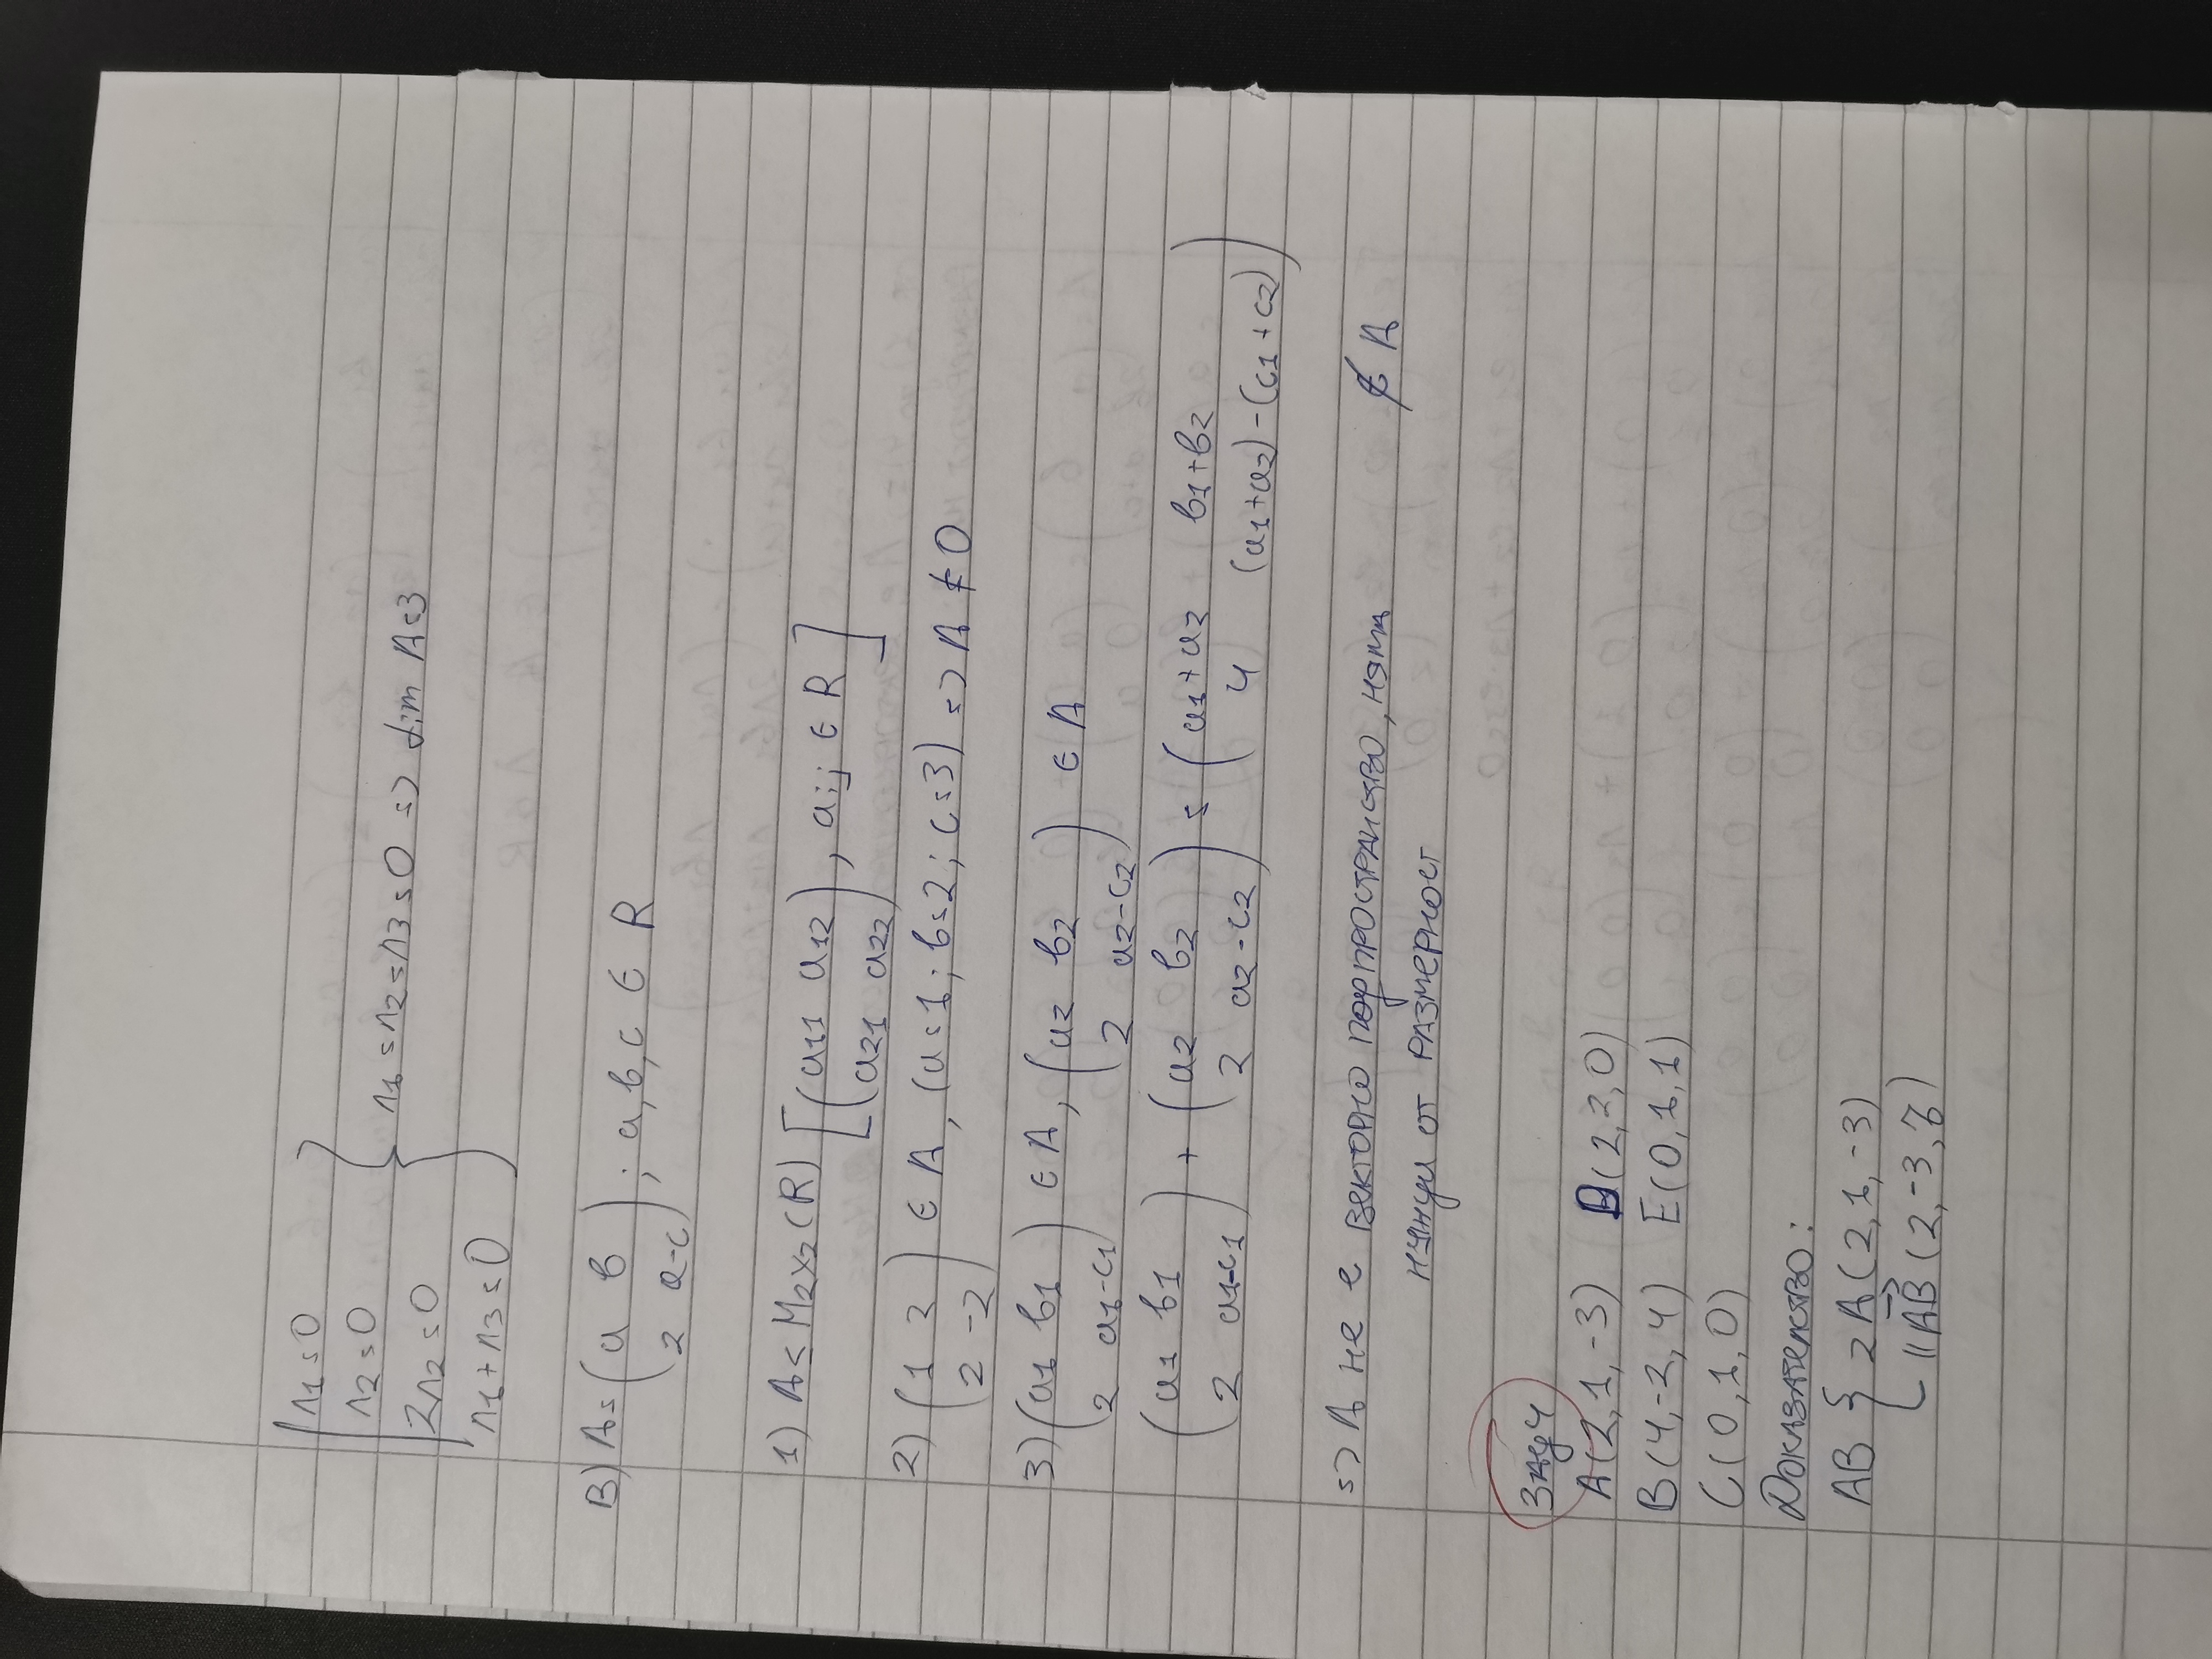 λ1 = 0
λ2 = 0
2λ2 = 0
λ1 + λ3 = 0
λ1 = λ2 = λ3 = 0 => dim A = 3
В) A = (a b
2 a-c) ; a, b, c ∈ R
1) A ≤ M2x2(R) [(a11 a12
a21 a22), aij ∈ R]
2) (1 2
2 -2) ∈ A, (a=1; b=2; c=3) => A ≠ 0
3) (a1 b1
2 a1-c1) ∈ A, (a2 b2
2 a2-c2) ∈ A
(a1 b1
2 a1-c1) + (a2 b2
2 a2-c2) = (a1+a2 b1+b2
4 (a1+a2)-(c1+c2))
∉ A
=> A не е векторно подпространство, няма
нужди от размерност
Зад 4
A(2,1,-3) D(2,2,0)
B(4,-2,4) E(0,1,1)
C(0,1,0)
Доказателство:
AB { z A(2,1,-3)
|| AB (2,-3,7)